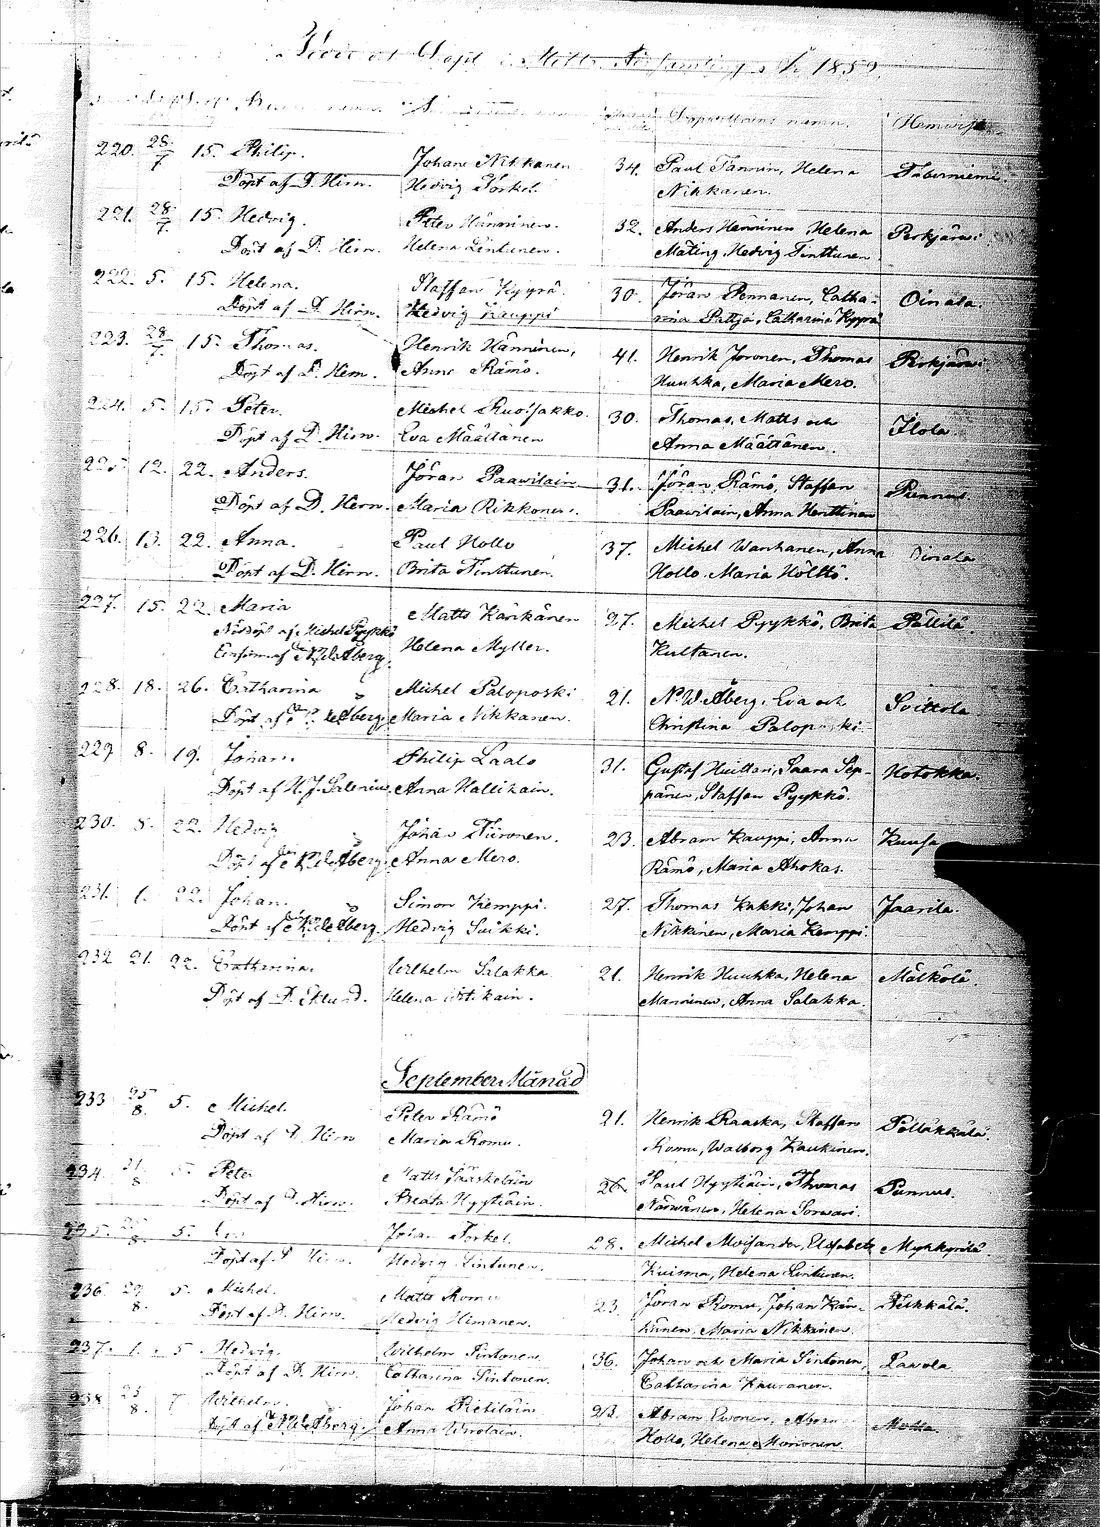 Född och Döpt i Mohla Församling År 1859.
Barnens namn. Hemvist
220. 28/7 15. Philip. Johan Nikkanen 34. Paul Tannin, Helena Taberniemi
Döpt af D. Hirn. Hedvig Torkel. Nikkanen.
221. 28/7. 15. Hedvig. Peter Hänninen. 32. Anders Hänninen Helena Perkjärvi
Döpt af D. Hirn. Helena Lintunen. Mating, Hedvig Tinttunen
222. 5. 15. Helena. Staffan Kyyrä. 30. Jöran Pennanen, Catha- Oinala.
Döpt af D. Hirn. Hedvig Kauppi rina Pattja, Catharina Kyyrä
223. 28/7. 15. Thomas. Henrik Hänninen, 41. Henrik Joronen, Thomas Perkjärvi
Döpt af D. Hirn. Anna Rämö. Huuhka, Maria Mero.
224. 5. 15. Peter. Michel Ruotjakko. 30. Thomas, Matts och Ilola.
Döpt af D. Hirn. Eva Määttänen Anna Määttänen.
225 12. 22. Anders. Jöran Paawilain. 31. Jöran Rämö, Staffan Punnus.
Döpt af D. Hirn. Maria Rikkonen. Paawilain, Anna Henttinen
226. 13. 22. Anna. Paul Hollo 37. Michel Wanhanen, Anna Oinala
Döpt af D. Hirn. Brita Tinttunen. Hollo. Maria Hölttö.
227. 15. 22. Maria Matts Karikänen 27. Michel Pyykkö, Brita Pällilä
Nöddöpt af Michel Pyykkö Helena Myller. Kultanen.
af N. W. Åberg.
228. 18. 26. Catharina Michel Paloposki 21. N. W. Åberg, Eva och Soittola
Döpt af N. W. Åberg Maria Nikkanen. Christina Paloposki
229 8. 19. Johan. Philip Laalo 31. Gustaf Huittari, Saara Sep- Hotokka.
Döpt af H. J. Salenius Anna Hallikain. pänen, Staffan Pyykkö.
230. 8. 22. Hedvig Johan Tiironen. 23. Abram Kauppi, Anna Kuusa
Döpt af N. W. Åberg. Anna Mero. Rämö, Maria Ahokas.
231. 1. 22. Johan. Simon Kemppi. 27. Thomas Kukki, Johan Jaarila.
Döpt af N. W. Åberg. Hedvig Suikki. Nikkinen, Maria Kemppi.
232 21. 22. Catharina. Wilhelm Salakka. 21. Henrik Huuhka, Helena Mälkölä.
Döpt af D. Eklund. Helena Utikain. Manninen, Anna Salakka.
September Månad
233. 25/8. 5. Michel. Peter Rämö 21. Henrik Raaska, Staffan Pölläkkälä.
Döpt af D. Hirn Maria Romu. Romu, Walborg Kaukinen.
234. 21/8 5. Peter Matts Jääskeläin 26 Paul Hyytiäin, Thomas Punnus.
Döpt af D. Hirn. Beata Hyytiäin. Närwänen, Helena Sorwari.
235. 8. 5. Jöran Torkel. 28. Michel Moisander, Elisabeth Myhkyrilä
Döpt af D. Hirn. Hedvig Lintunen. Kuisma, Helena Lintunen.
236. 29/8. 5. Michel. Matts Romu 23 Jöran Romu, Johan Kär- Pikkälä.
Döpt af D. Hirn. Hedvig Himanen. künen, Maria Nikkinen
237. 1. 5 Hedvig. Wilhelm Sintonen. 36. Johan och Maria Sintonen, Lavola
Döpt af D. Hirn. Catharina Sintonen. Catharina Kauranen.
238 25/8 7 Wilhelm. Johan Reiläin 23. Abram Ewonen, Abram Mohla.
Döpt af N. W. Åberg. Anna Wirolain. Hollo, Helena Moronen.